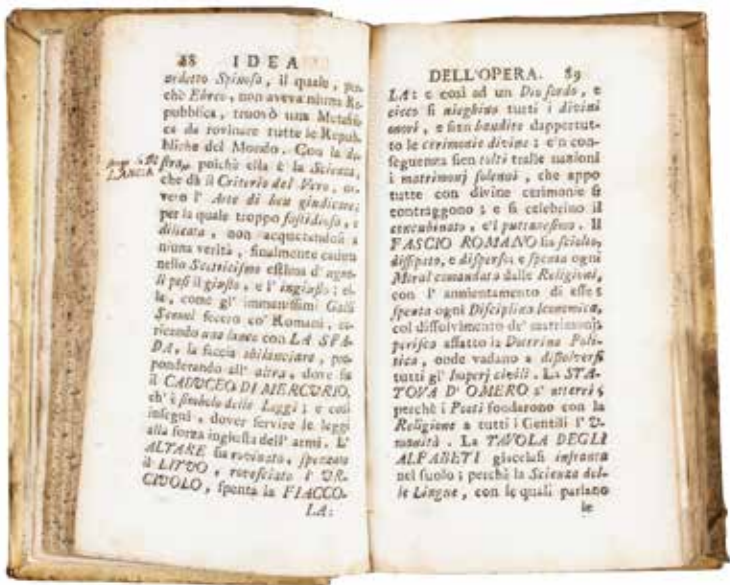 88 IDEA
nedetto Spinosa, il quale, per-
chè Ebreo, non aveva niuna Re-
pubblica, truovò una Metafisi-
ca da rovinare tutte le Repub-
bliche del Mondo. Con la de-
LANCIA
stra, poichè ella è la Scienza,
che dà il Criterio del Vero, ov-
vero l' Arte di ben giudicare;
per la quale troppo fastidiosa, e
dilicata, non acquetandosi a
niuna verità, finalmente caduta
nello Scetticismo estima d' ugua-
li pesi il giusto, e l' ingiusto; el-
la, come gl' immanissimi Galli
Sennoni fecero co' Romani, ca-
ricando una lance con LA SPA-
DA, la faccia sbilanciare, pre-
ponderando all' altra, dove sia
il CADUCEO DI MERCURIO,
ch' è simbolo delle Leggi; e così
insegni, dover servire le leggi
alla forza ingiusta dell' armi. L'
ALTARE sia rovinato, spezzato
il LITUO, rovesciato l' UR-
CIUOLO, spenta la FIACCO-
LA:
DELL'OPERA. 89
LA: e così ad un Dio sordo, e
cieco si nieghino tutti i divini
onori, e sien bandite dappertut-
to le cerimonie divine; e 'n con-
seguenza sien tolti tralle nazioni
i matrimonj solenni, che appo
tutte con divine cerimonie si
contraggono; e si celebrino il
concubinato, e 'l puttanesimo. Il
FASCIO ROMANO sia sciolto,
dissipato, e disperso; e spenta ogni
Moral comandata dalle Religioni,
con l' annientamento di esse;
spenta ogni Disciplina Iconomica,
col dissolvimento de' matrimonj;
perisca affatto la Dottrina Poli-
tica, onde vadano a dissolversi
tutti gl' Imperj civili. La STA-
TOVA D' OMERO s' atterri;
perchè i Poeti fondarono con la
Religione a tutti i Gentili l' U-
manità. La TAVOLA DEGLI
ALFABETI giacciasi infranta
nel suolo; perchè la Scienza del-
le Lingue, con le quali parlano
le